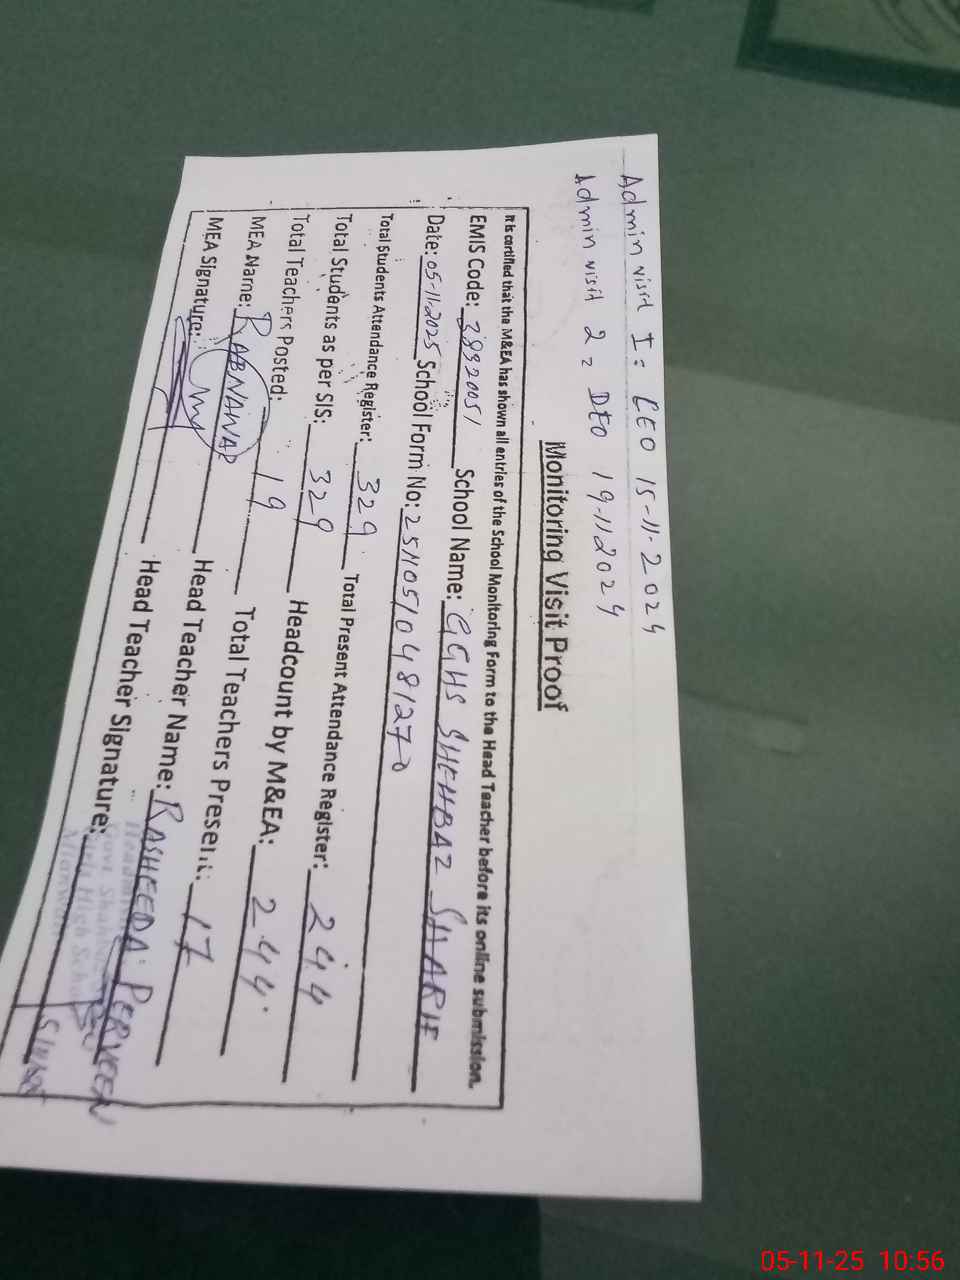 Admin visit 1: CEO 15-11-2024
Admin visit 2 = DEO 19-11-2024
Monitoring Visit Proof
It is certified that the M&EA has shown all entries of the School Monitoring Form to the Head Teacher before its online submission.
EMIS Code: 38920051 School Name: GGHS SHEHBAZ SHARIF
Date: 05-11-2025 School Form No: 25110510481270
Total Students Attendance Register: 329 Total Present Attendance Register: 244
Total Students as per SIS: 329 Headcount by M&EA: 244
Total Teachers Posted: 19 Total Teachers Present: 17
MEA Name: RABNAWAZ Head Teacher Name: RASHEEDA PERVEEN
MEA Signature: Head Teacher Signature:
Govt. High School
05-11-25 10:56